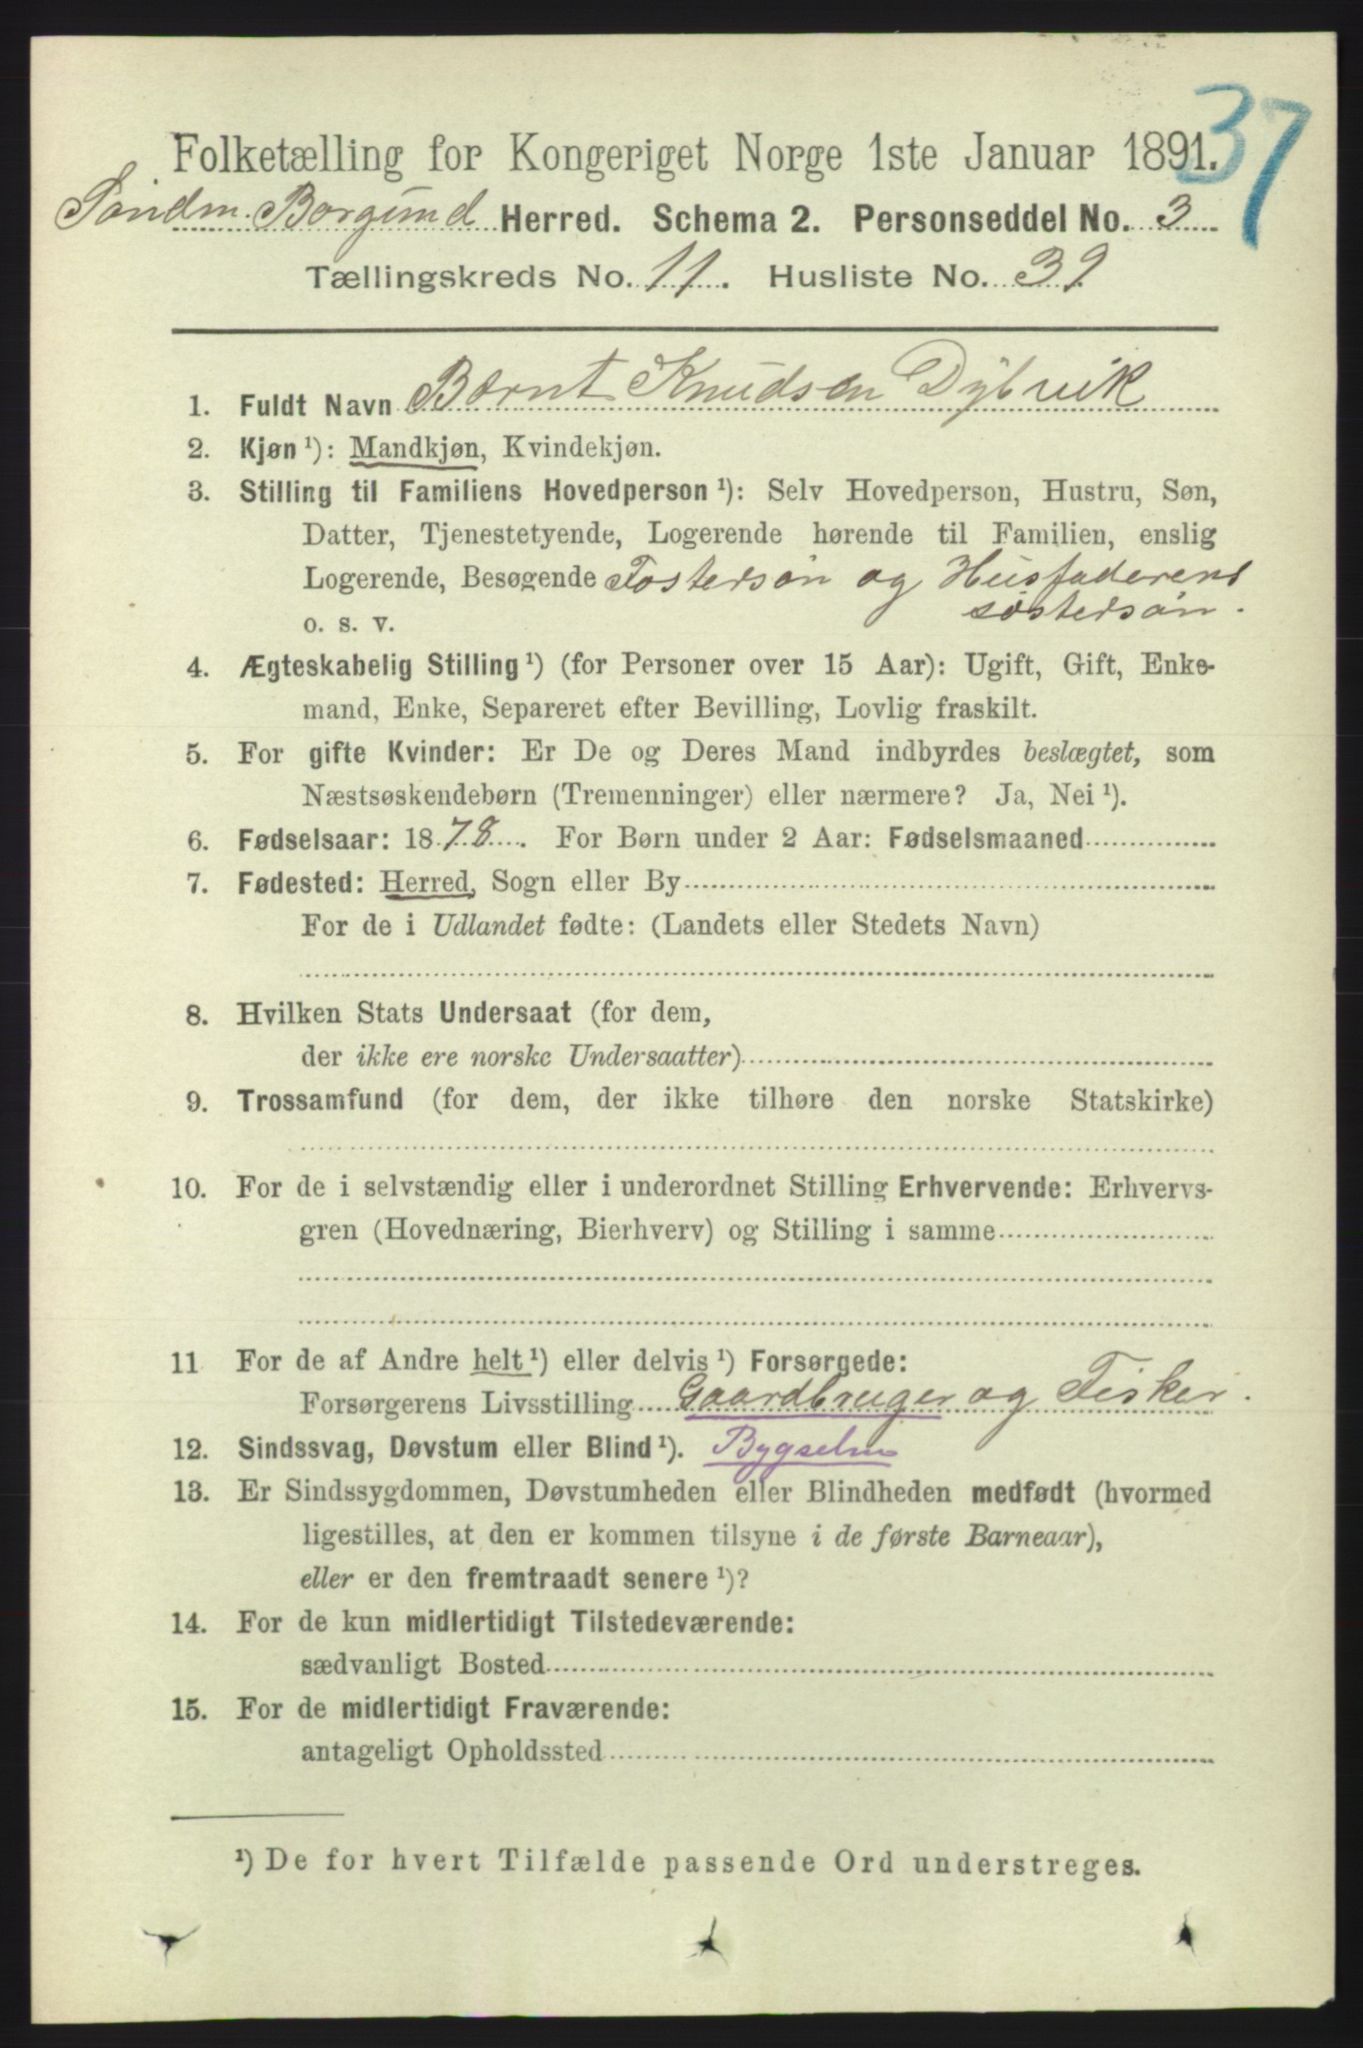 37
Folketælling for Kongeriget Norge 1ste Januar 1891.
Søndm. Borgund Herred. Schema 2. Personseddel No. 3
Tællingskreds No. 11. Husliste No. 39
1. Fuldt Navn Bernt Knudsen Dybvik
2. Kjøn ¹): Mandkjøn, Kvindekjøn.
3. Stilling til Familiens Hovedperson ¹): Selv Hovedperson, Hustru, Søn,
Datter, Tjenestetyende, Logerende hørende til Familien, enslig
Logerende, Besøgende Fostersøn og Husfaderens
o. s. v. søstersøn.
4. Ægteskabelig Stilling ¹) (for Personer over 15 Aar): Ugift, Gift, Enke-
mand, Enke, Separeret efter Bevilling, Lovlig fraskilt.
5. For gifte Kvinder: Er De og Deres Mand indbyrdes beslægtet, som
Næstsøskendebørn (Tremenninger) eller nærmere? Ja, Nei ¹).
6. Fødselsaar: 1878. For Børn under 2 Aar: Fødselsmaaned
7. Fødested: Herred, Sogn eller By
For de i Udlandet fødte: (Landets eller Stedets Navn)
8. Hvilken Stats Undersaat (for dem,
der ikke ere norske Undersaatter)
9. Trossamfund (for dem, der ikke tilhøre den norske Statskirke)
10. For de i selvstændig eller i underordnet Stilling Erhvervende: Erhvervs-
gren (Hovednæring, Bierhverv) og Stilling i samme
11 For de af Andre helt ¹) eller delvis ¹) Forsørgede:
Forsørgerens Livsstilling Gaardbruger og Fisker.
12. Sindssvag, Døvstum eller Blind ¹). Bygselm
13. Er Sindssygdommen, Døvstumheden eller Blindheden medfødt (hvormed
ligestilles, at den er kommen tilsyne i de første Barneaar),
eller er den fremtraadt senere ¹)?
14. For de kun midlertidigt Tilstedeværende:
sædvanligt Bosted
15. For de midlertidigt Fraværende:
antageligt Opholdssted
¹) De for hvert Tilfælde passende Ord understreges.